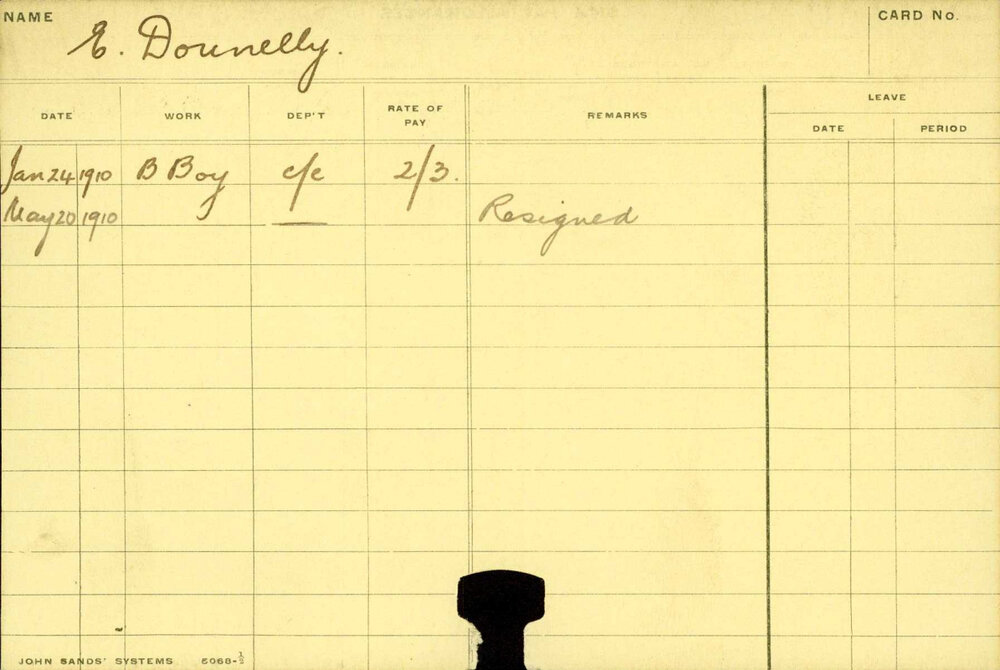 NAME
E. Donnelly.
CARD No.
DATE WORK DEP'T RATE OF PAY REMARKS LEAVE
DATE PERIOD
Jan 24 1910 B Boy c/c 2/3.
May 20 1910 — Resigned
JOHN SANDS' SYSTEMS 5068-½